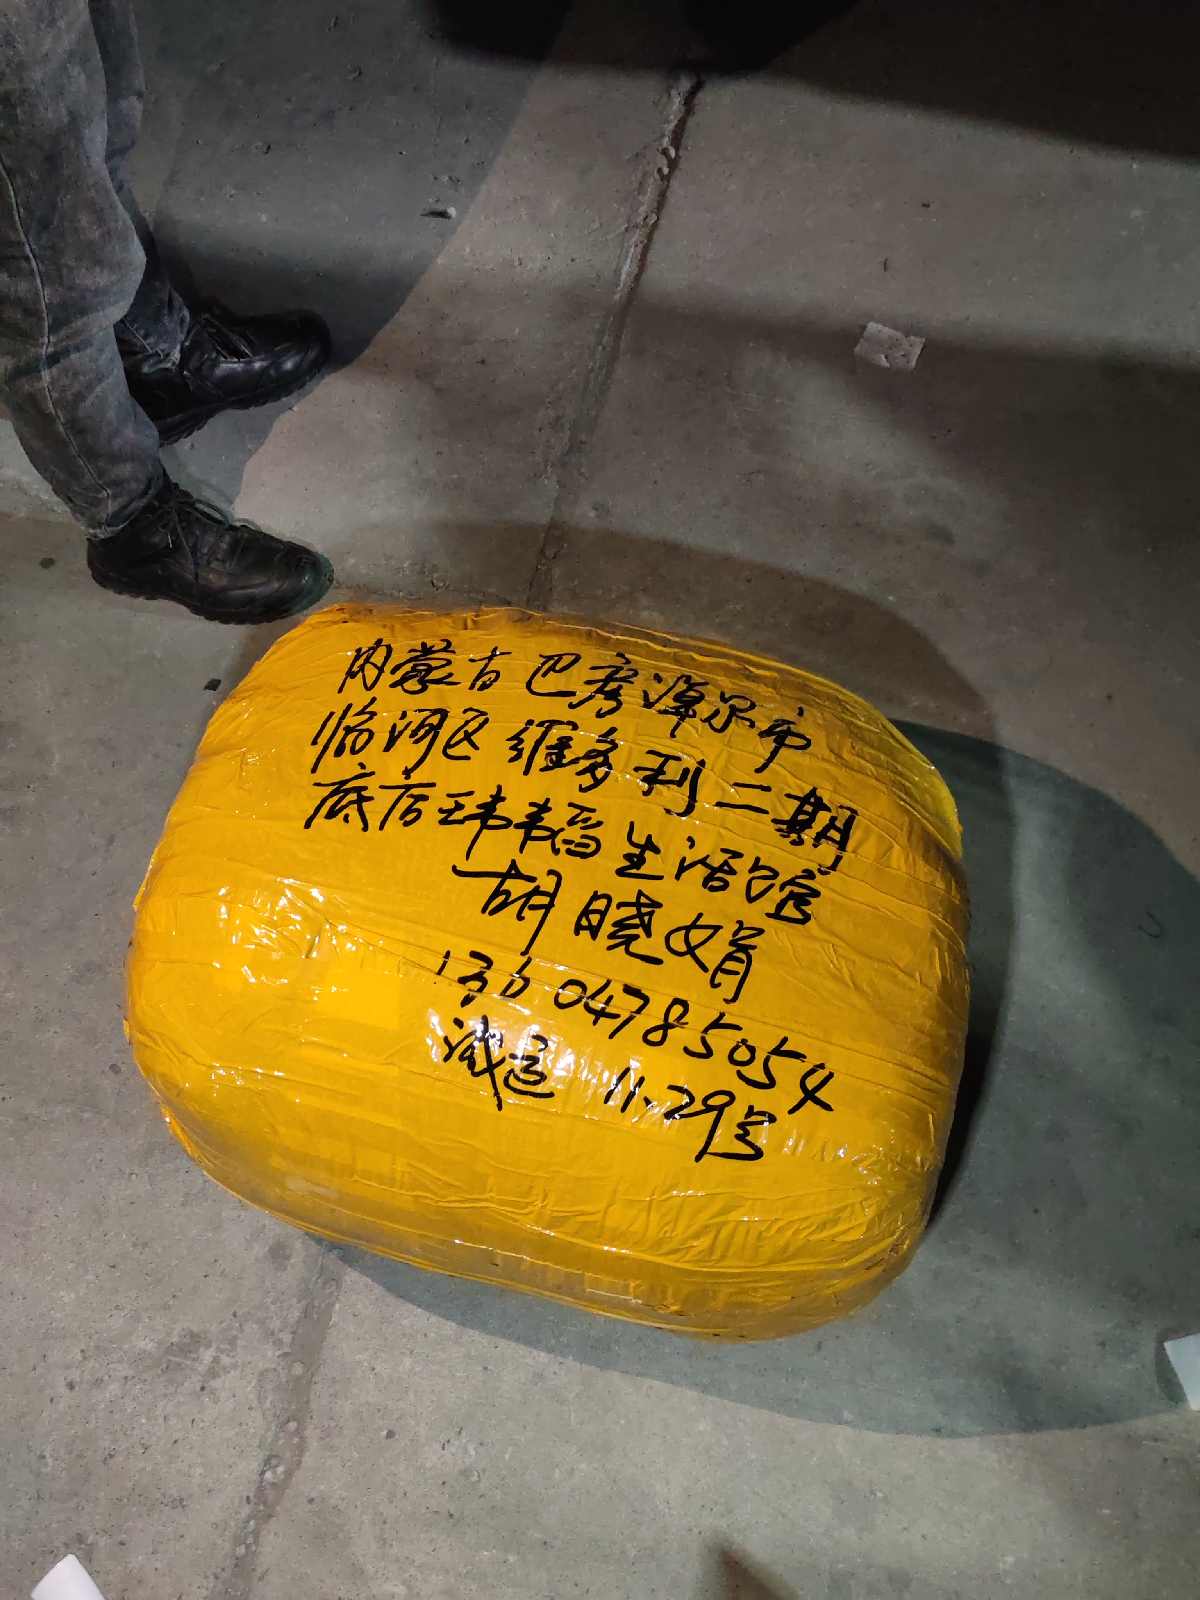 内蒙古巴彦淖尔市
临河区维多利二期
底店玮韦韬生活馆
胡晓娟
13604785054
诚邑 11.29号